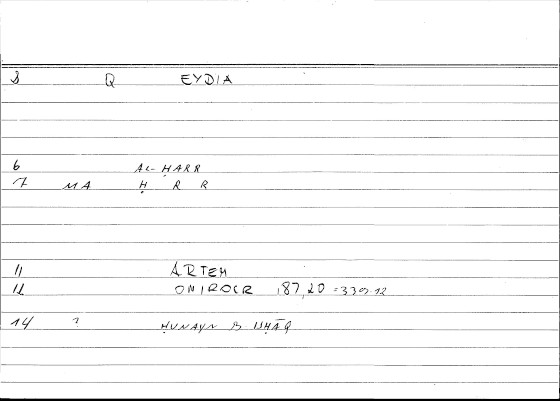 8 Q EYDIA
6 AL-ḤARR
7 MA Ḥ R R
11 ARTEM
12 ONIROCR 187,20 = 330.12
14 ? ḤUNAYN B ISḤĀQ